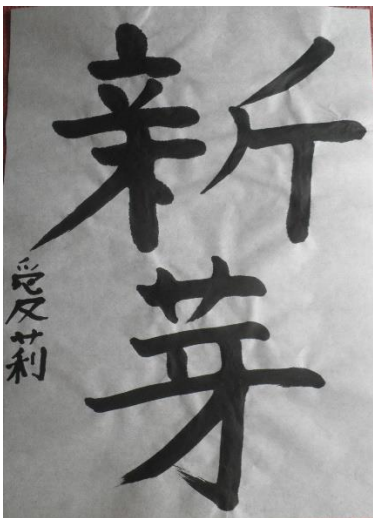 新芽
愛莉